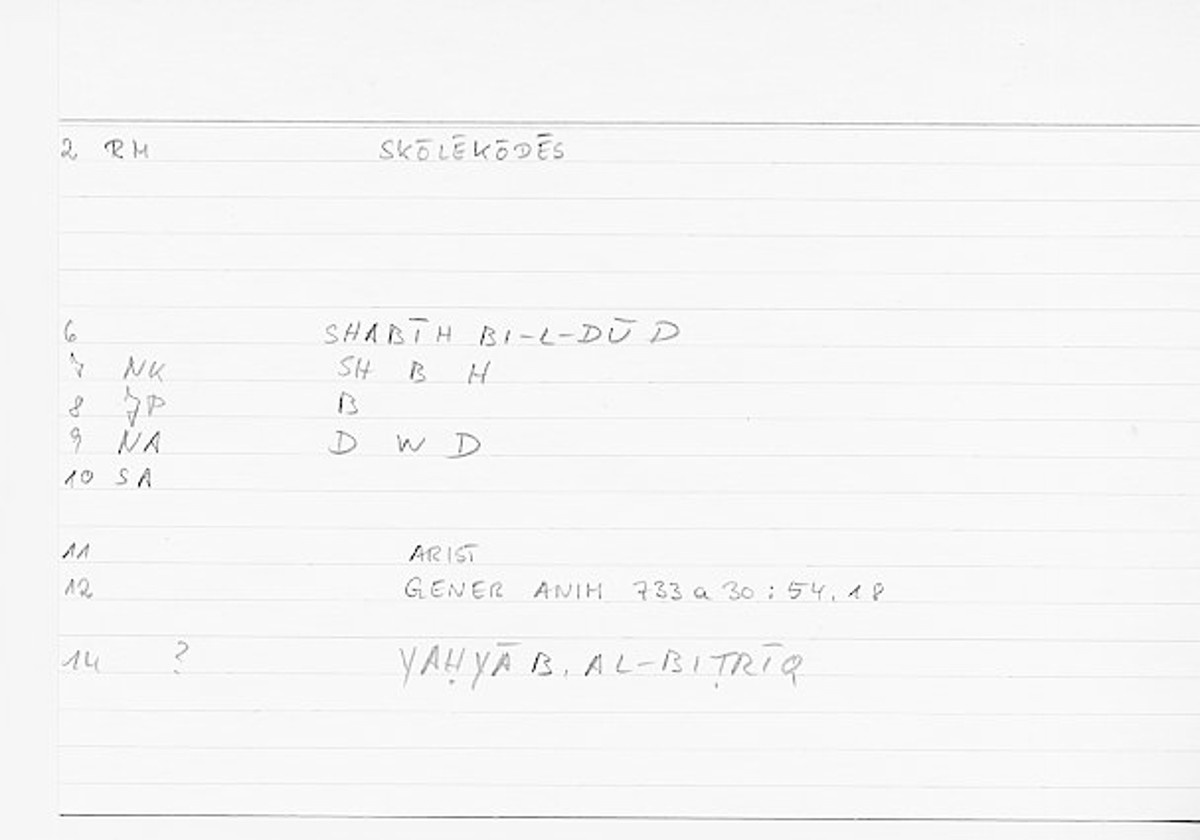 2 RM SKŌLĒKŌDĒS
6 SHABĪH BI-L-DŪD
7 NK SH B H
8 JP B
9 NA D W D
10 SA
11 ARIST
12 GENER ANIM 733 a 30 : 54.18
14 ? YAḤYĀ B. AL-BIṬRĪQ